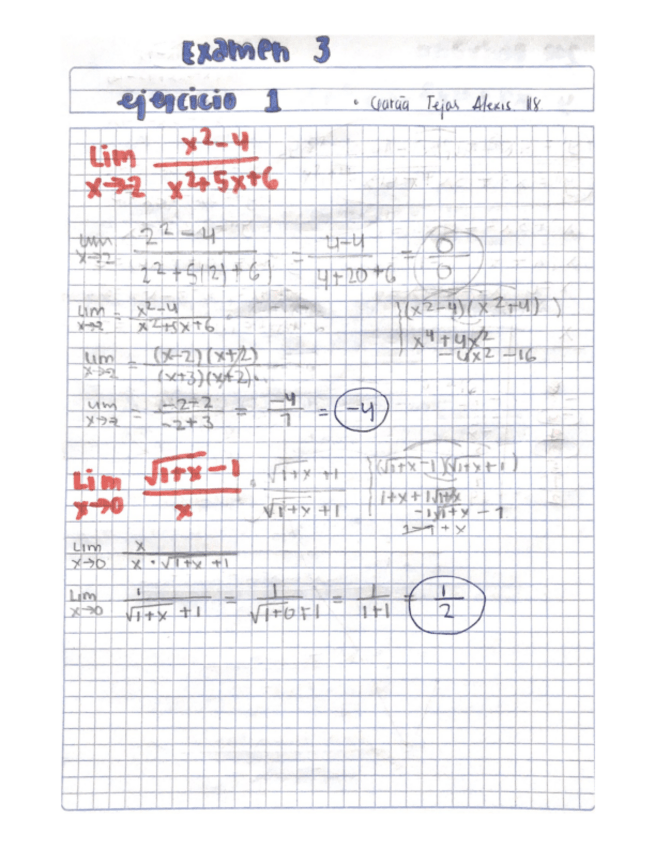 Examen 3
ejercicio 1
• García Tejas Alexis 118
Lim x→2 x²-4 / x²+5x+6
Lim x→2 2²-4 / 2²+5(2)+6) = 4-4 / 4+20+6 = 0/0
Lim x→2 = x²-4 / x²+5x+6
(x²-4)(x²+4)
x⁴+4x²
-4x²-16
Lim x→2 = (x-2)(x+2) / (x+3)(x+2)
Lim x→2 = -2-2 / -2+3 = -4/1 = -4
Lim x→0 √1+x -1 / x • √1+x +1 / √1+x +1
(√1+x-1)(√1+x+1)
1+x+1√1+x
-1√1+x -1
1-1+x
Lim x→0 x / x • √1+x +1
Lim x→0 1 / √1+x +1 = 1 / √1+0+1 = 1 / 1+1 = 1/2